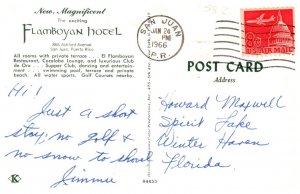 New, Magnificent
The exciting
Flamboyan Hotel
San Juan, Puerto Rico
All rooms with private terraces. . . El Flamboyan
Restaurant, Cocoloba Lounge, and luxurious Club
de Oro . . . Supper Club, dancing and entertain-
ment . . . swimming pool, terrace and private
beach. All water sports. Golf Courses nearby.
Hi!
Just a short
stay; no golf &
no snow to shovel
Jimmie
K
SAN JUAN
JAN 24
PM
1966
P.R.
8c
AIR MAIL
POST CARD
Address
Howard Maxwell
Spirit Lake
Winter Haven
Florida